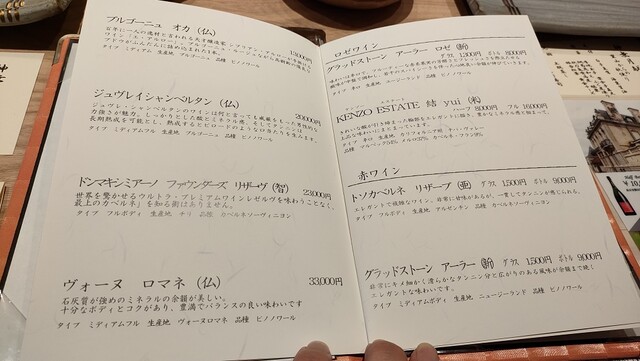 ブルゴーニュ オカ (仏)
13,000円
タイプ ミディアム 生産地 ブルゴーニュ 品種 ピノノワール
ジュヴレイシャンベルタン (仏)
20,000円
ジュヴレ・シャンベルタンのワインは何と言っても威厳をもった男性的な
力強さが魅力。しっかりとした酸とミネラル感、そしてタンニンは
長期熟成を可能とし、熟成するとビロードのような口当たりを生みます。
タイプ ミディアムフル 生産地 ブルゴーニュ 品種 ピノノワール
ドンマキシミアーノ ファウンダーズ リザーヴ (智)
23,000円
世界を驚かせるウルトラ・プレミアムワインレゼルヴを味わうことなく、
最上のカベルネ」を知る術はありません。
タイプ フルボディ 生産地 チリ 品種 カベルネソーヴィニヨン
ヴォーヌ ロマネ (仏)
33,000円
石灰質が強めのミネラルの余韻が美しい。
十分なボディとコクがあり、豊満でバランスの良い味わいです
タイプ ミディアムフル 生産地 ヴォーヌロマネ 品種 ピノノワール
ロゼワイン
グラッドストーン アーラー ロゼ (新) グラス 1,300円 ボトル 8000円
タイプ 辛口 生産地 ニュージーランド 品種 ピノノワール
KENZO ESTATE 結 yui (米)
ハーフ 8000円 フル 16,000円
上品な味わいにまとまっています。
タイプ 辛口 生産地 カリフォルニア州 ナパ・ヴァレー
赤ワイン
トソカベルネ リザーブ (亜) グラス 1,500円 ボトル 9,000円
エレガントで複雑なワイン。非常に甘味があるが、一貫してタンニンが感じられる。
タイプ フルボディ 生産地 アルゼンチン 品種 カベルネソーヴィニヨン
グラッドストーン アーラー (新) グラス 1,500円 ボトル 9,000円
非常にキメ細かく滑らかなタンニン分と広がりのある風味が余韻まで続く
エレガントな味わいです。
タイプ ミディアムボディ 生産地 ニュージーランド 品種 ピノノワール